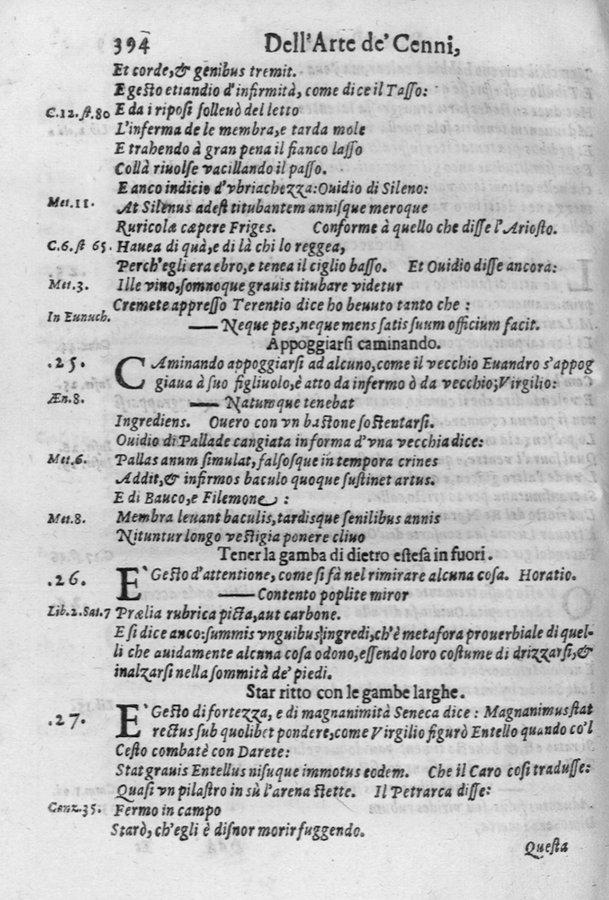 394 Dell'Arte de' Cenni,
Et corde, & genibus tremit.
E gesto etiandio d'infirmità, come dice il Tasso:
C.12. st. 80 E da i riposi solleuò del letto
L'inferma de le membra, e tarda mole
E trahendo à gran pena il fianco lasso
Collà riuolse vacillando il passo.
E anco indicio d'vbriachezza: Ouidio di Sileno:
Met. 11. At Silenus adest titubantem annisque meroque
Ruricolæ cæpere Friges. Conforme à quello che disse l'Ariosto.
C.6. st 65. Hauea di quà, e di là chi lo reggea,
Perch'egli era ebro, e tenea il ciglio basso. Et Ouidio disse ancora:
Met. 3. Ille vino, somnoque grauis titubare videtur
Cremete appresso Terentio dice ho beuuto tanto che :
In Eunuch. —— Neque pes, neque mens satis suum officium facit.
Appoggiarsi caminando.
.25. CAminando appoggiarsi ad alcuno, come il vecchio Euandro s'appog
giaua à suo figliuolo, è atto da infermo ò da vecchio; Virgilio:
Æn. 8. —— Natumque tenebat
Ingrediens. Ouero con vn bastone sostentarsi.
Ouidio di Pallade cangiata in forma d'vna vecchia dice:
Met. 6. Pallas anum simulat, falsosque in tempora crines
Addit, & infirmos baculo quoque sustinet artus.
E di Bauco, e Filemone :
Met. 8. Membra leuant baculis, tardisque senilibus annis
Nituntur longo vestigia ponere cliuo
Tener la gamba di dietro estesa in fuori.
.26. E` Gesto d'attentione, come si fà nel rimirare alcuna cosa. Horatio.
—— Contento poplite miror
Lib. 2. Sat. 7 Prælia rubrica picta, aut carbone.
E si dice anco: summis vnguibus ingredi, ch'è metafora prouerbiale di quel-
li che auidamente alcuna cosa odono, essendo loro costume di drizzarsi, &
inalzarsi nella sommità de' piedi.
Star ritto con le gambe larghe.
.27. E` Gesto di fortezza, e di magnanimità Seneca dice : Magnanimus stat
rectus sub quolibet pondere, come Virgilio figurò Entello quando co'l
Cesto combatè con Darete:
Stat grauis Entellus nisuque immotus eodem. Che il Caro cosi tradusse:
Quasi vn pilastro in sù l'arena stette. Il Petrarca disse:
Canz. 35. Fermo in campo
Starò, ch'egli è disnor morir fuggendo.
Questa